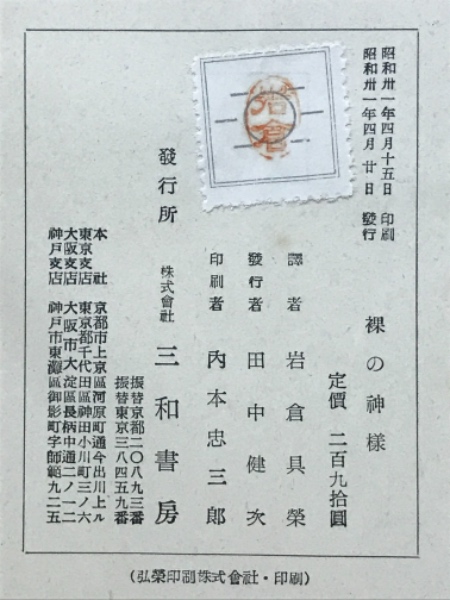 昭和卅一年四月十五日 印刷
昭和卅一年四月廿日 發行
裸の神様
定價 二百九拾圓
譯者 岩倉具榮
發行者 田中健次
印刷者 內本忠三郎
發行所 株式會社 三和書房
振替京都二〇八九三番
振替東京三八四五九番
本社 京都市上京區河原町通今出川上ル
東京支店 東京都千代田區神田小川町三ノ六
大阪支店 大阪市大淀區長柄中通二ノ一二
神戸支店 神戸市東灘區御影町字師範九二五
(弘榮印刷株式會社・印刷)